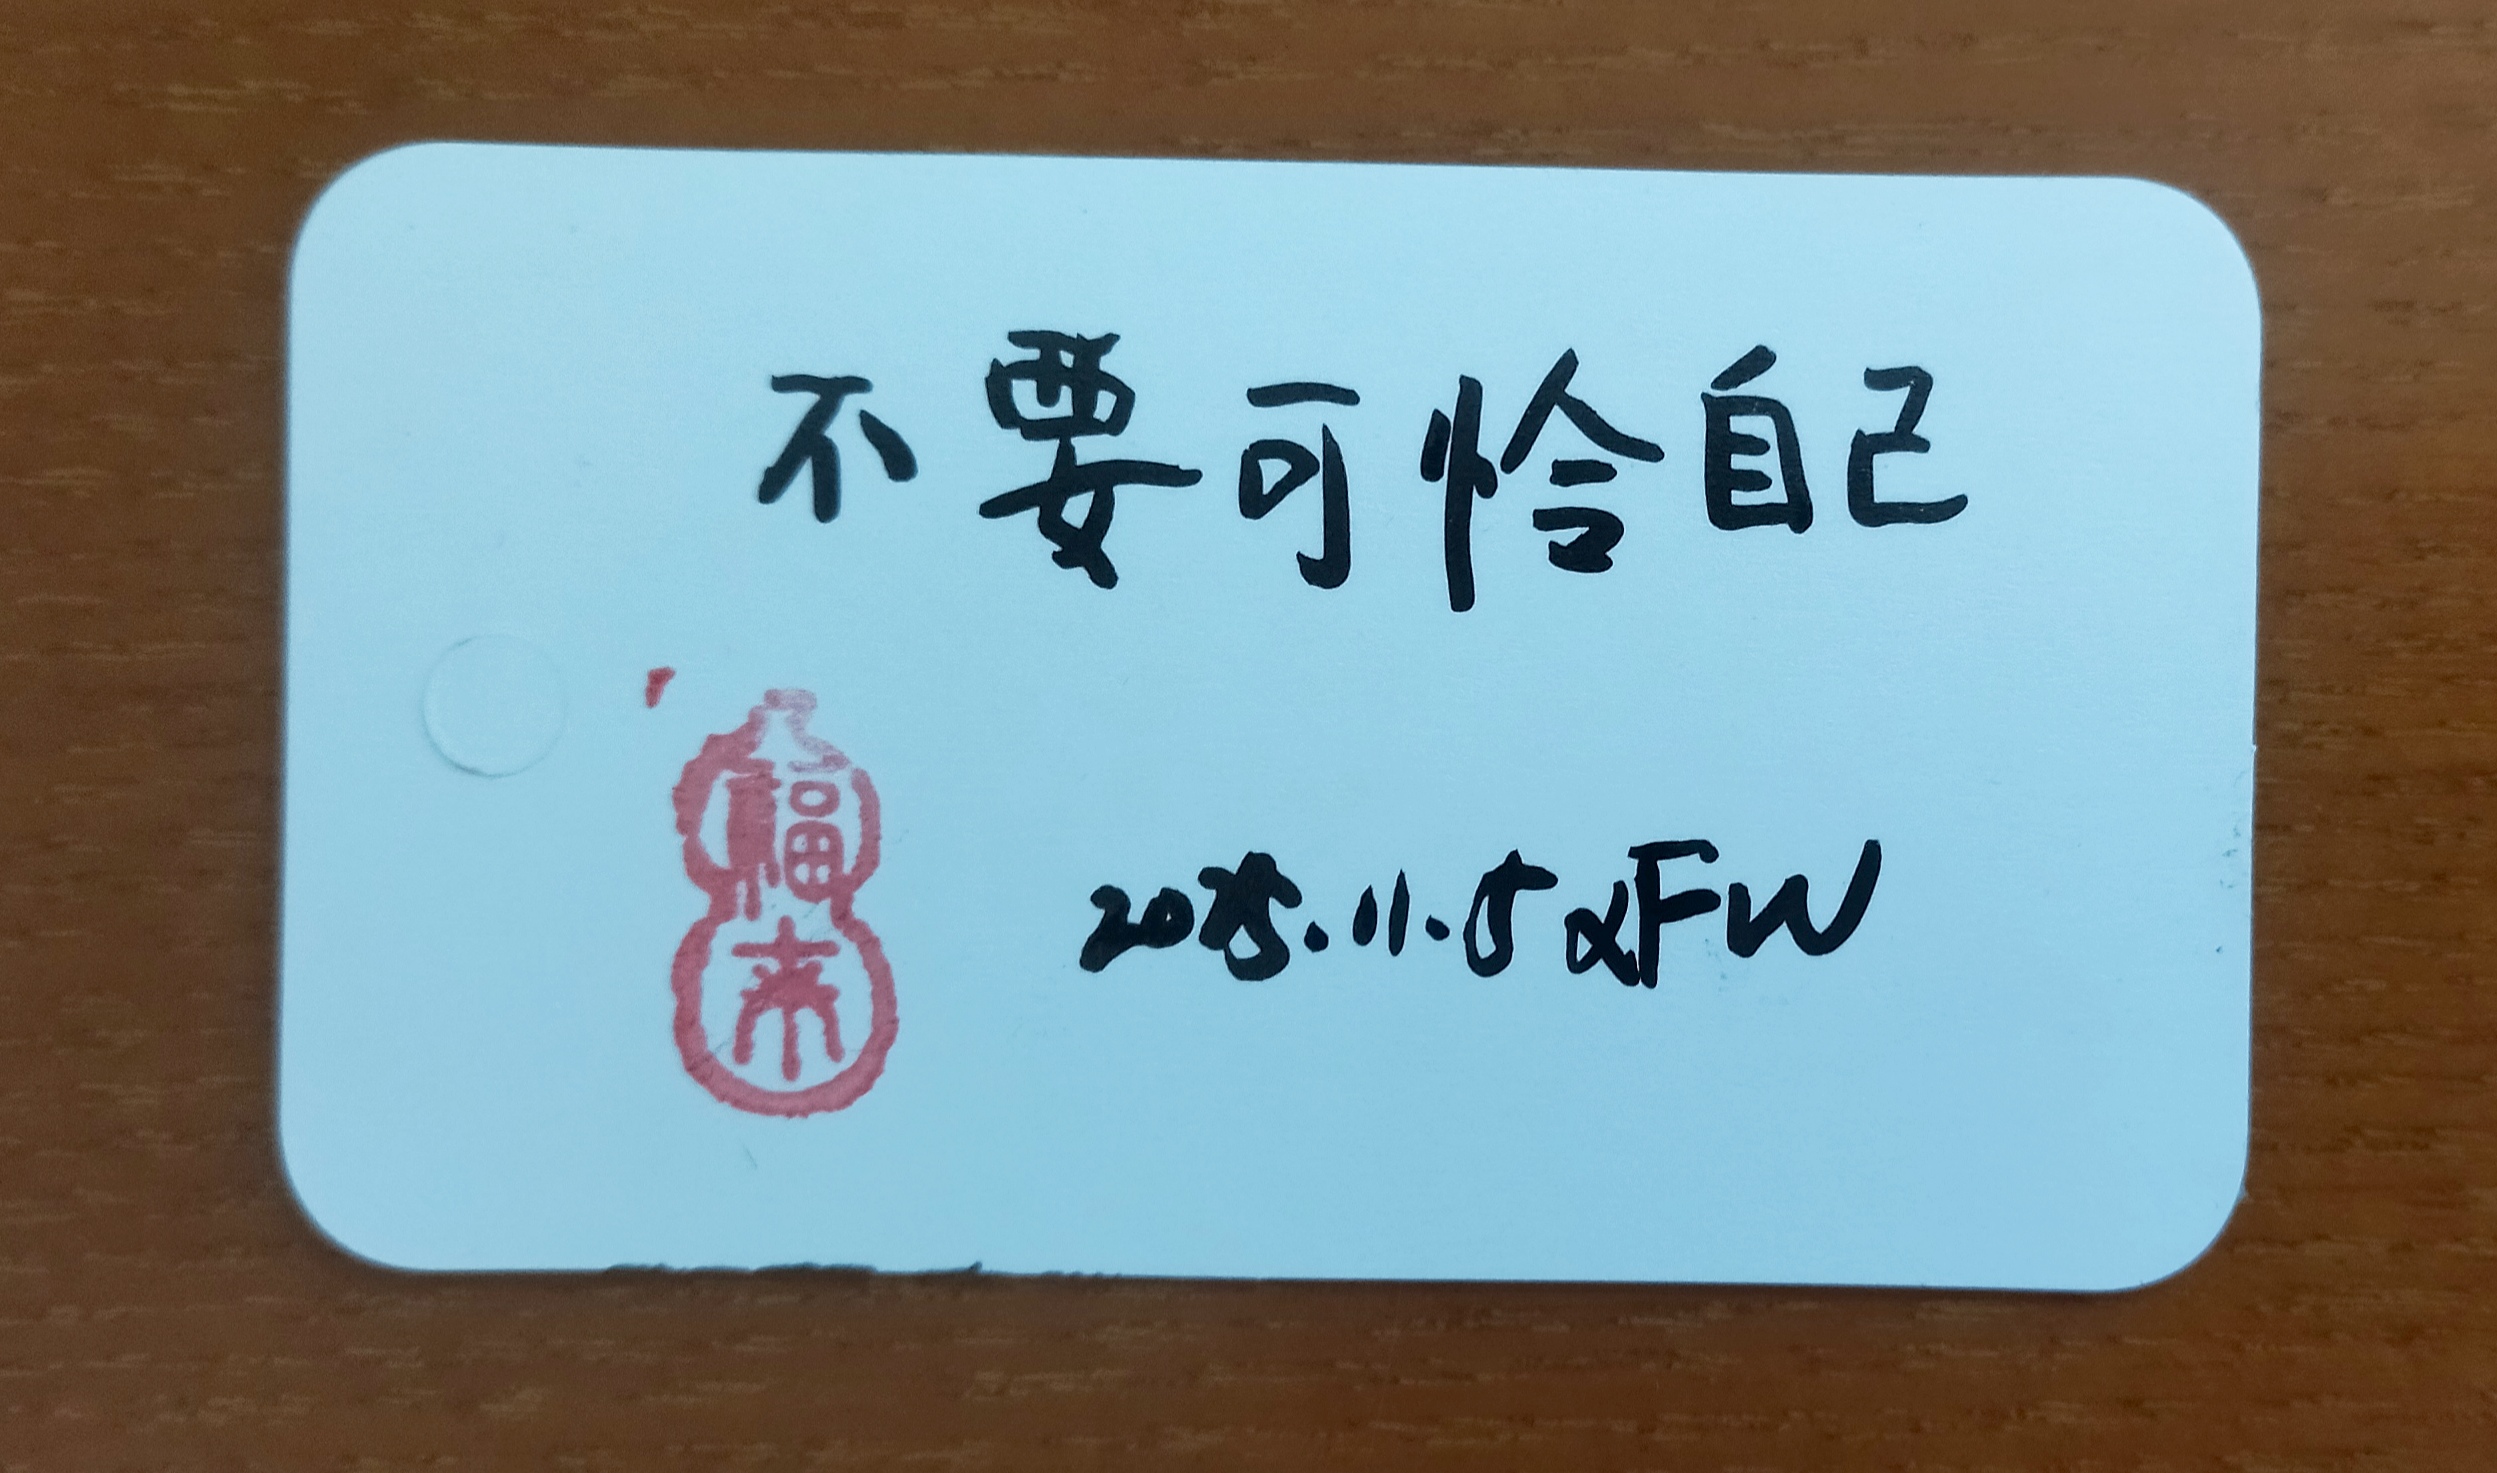 不要可恰自己
福来
2025.11.5 XFW